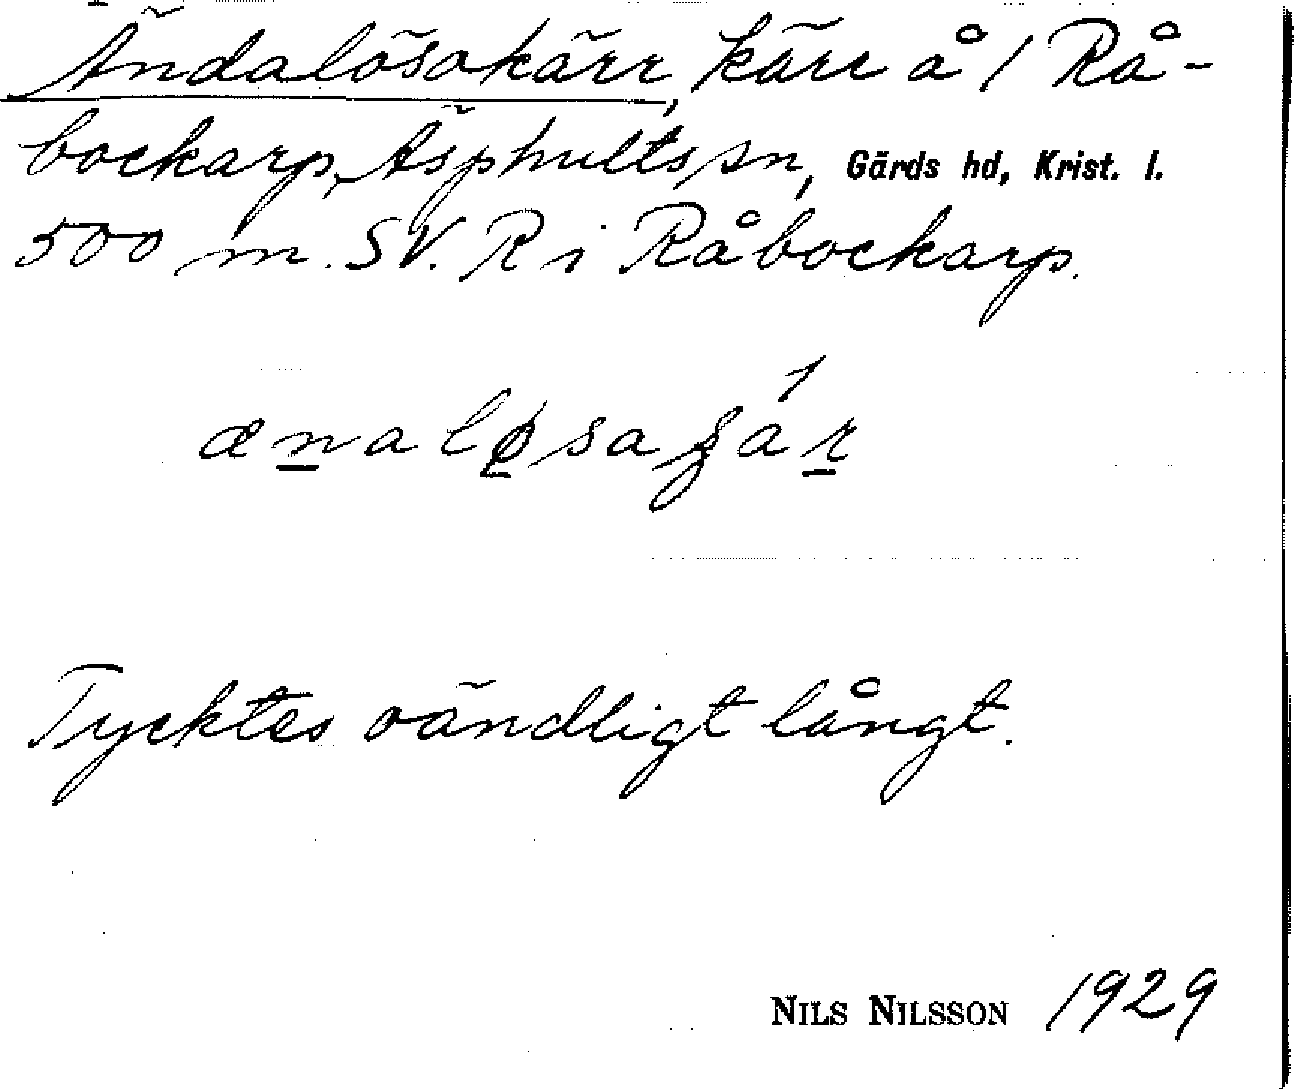 Ändalösakärr, kärr å 1 Rå-
bockarp, Äsphults sn, Gärds hd, Krist. l.
500 m. SV. R i Råbockarp.
Tycktes oändligt långt.
NILS NILSSON 1929